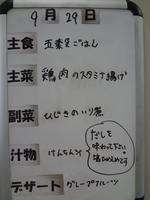 9月29日
主食 五素煮ごはん
主菜 鶏肉のスタミナ揚げ
副菜 ひじきのいり煮
汁物 けんちん汁
だしを
味わって下さい
デザート グレープフルーツ